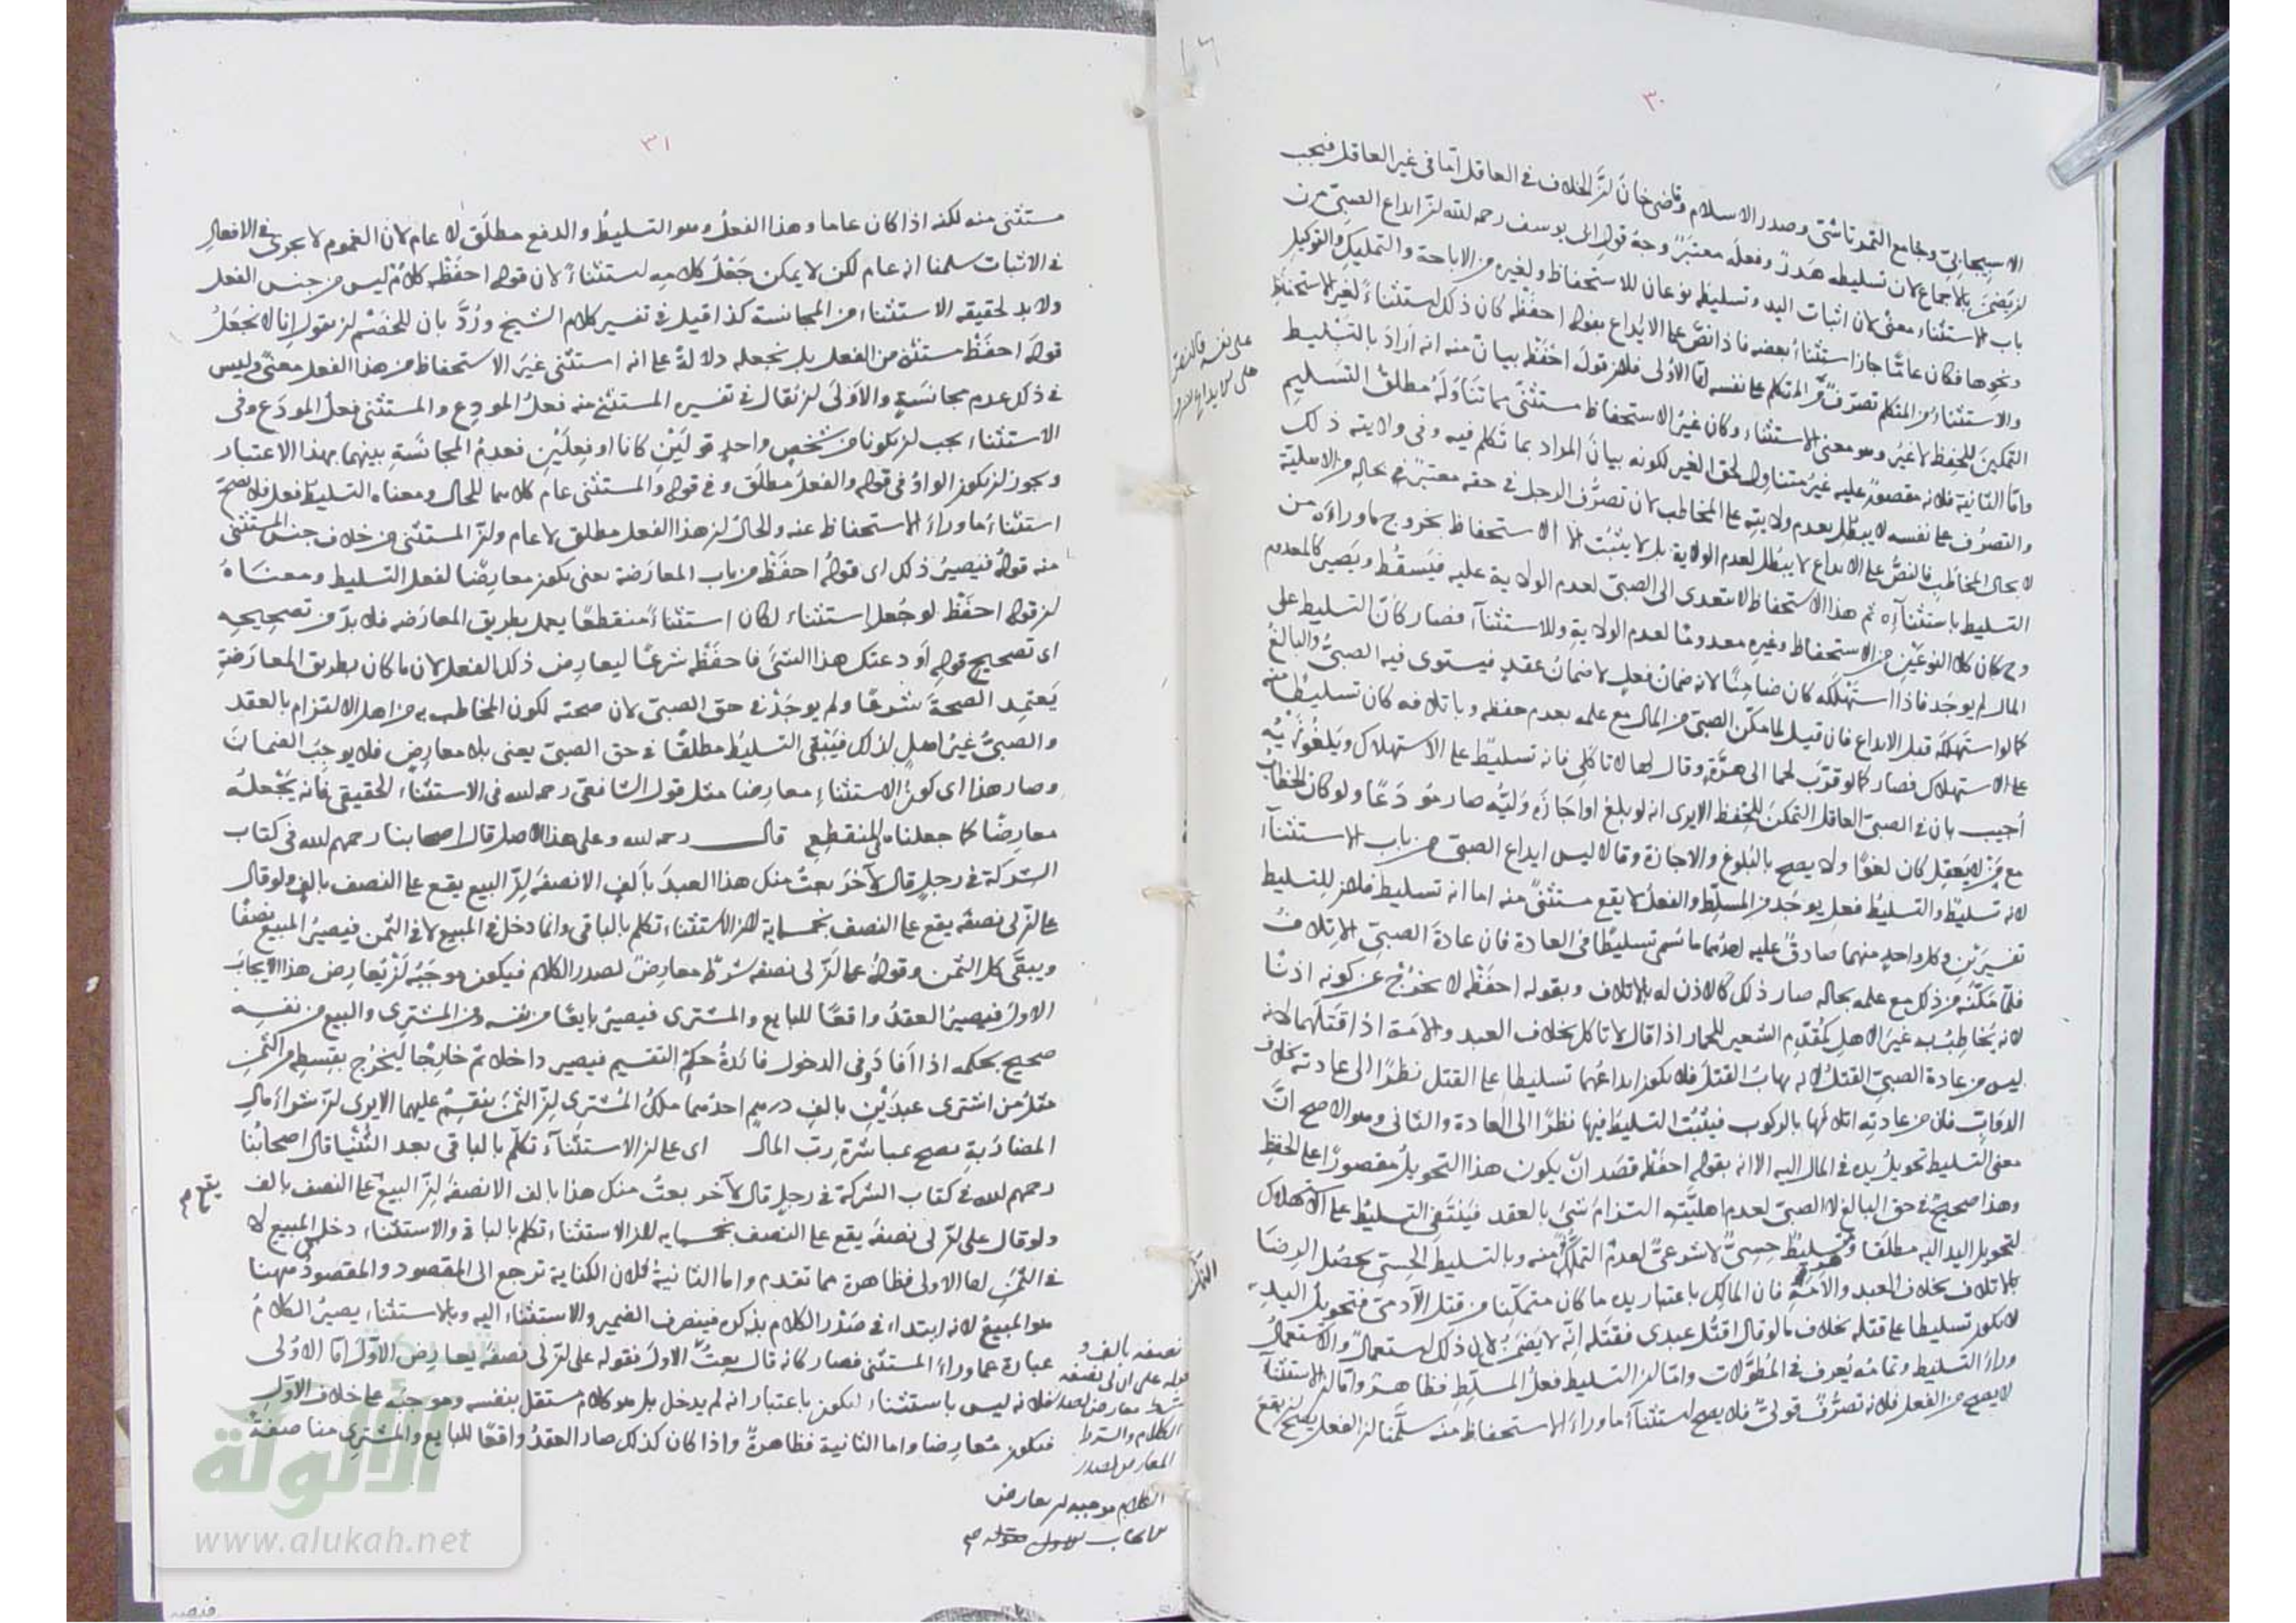 ٣٠
الاسبيجابي وجامع التمرتاشي وصدر الاسلام وقاضي خان لن الخلاف في العاقل اما في غير العاقل فيجب
لن يضمن بالاجماع لان تسليطه هدر وفعله معتبر وجه قول ابي يوسف رحمه الله لن ايداع الصبي من
باب الاستثناء معنى لان اثبات اليد وتسليطه نوعان للاستحفاظ ولغيره من الاباحة والتمليك والتوكيل
ونحوها فكان عاما جاز استثناء بعضه فاذا نص على الايداع بقوله احفظه كان ذلك استثناء لغير الاستحفاظ
والاستثناء من المتكلم تصرف من المتكلم على نفسه اما الاولى فلان قوله احفظ بيان منه انه اراد بالتسليط
التمكين للحفظ لا غير وهو معنى الاستثناء وكان غير الاستحفاظ مستثنى مما تناوله مطلق التسليم
واما الثانية فلانه مقصور عليه غير متناول لحق الغير لكونه بيان المراد بما تكلم فيه وفي ولايته ذلك
والتصرف على نفسه لا يبطل بعدم ولايته على المخاطب لان تصرف الرجل في حقه معتبر في حاله من الاهلية
لا بحال المخاطب فالنص على الايداع لا يبطل لعدم الولاية بل لا يثبت الا الاستحفاظ بخروج ما وراءه من
التسليط باستثنائه ثم هذا الاستحفاظ لا يتعدى الى الصبي لعدم الولاية عليه فيسقط ويصير كالمعدوم
وح كان كلا النوعين من الاستحفاظ وغيره معدوما لعدم الولاية وللاستثناء فصار كأن التسليط على
المال لم يوجد فاذا استهلكه كان ضامنا لانه ضمان فعل لا ضمان عقد فيستوي فيه الصبي والبالغ
كما لو استهلكه قبل الايداع فان قيل لما مكن الصبي من المال مع علمه بعدم حفظه وباتلافه كان تسليطا منه
على الاستهلاك فصار كما لو قرب لحما الى هرة وقال لها لا تاكلي فانه تسليط على الاستهلاك ويلغو نهيه
اجيب بان في الصبي العاقل التمكن للحفظ الا يرى انه لو بلغ او اجازه وليه صار مودعا ولو كان الخطاب
مع من لا يعقل كان لغوا ولا يصح بالبلوغ والاجازة وقالا ليس ايداع الصبي من باب الاستثناء
لانه تسليط والتسليط فعل يوجد من المسلط والفعل لا يقع مستثنى منه اما انه تسليط فلان للتسليط
تفسيرين وكل واحد منهما صادق عليه احدهما ما سمي تسليطا في العادة فان عادة الصبي الاتلاف
فلما مكنه من ذلك مع علمه بحاله صار ذلك كالاذن له بالاتلاف وبقوله احفظ لا يخرج عن كونه اذنا
لانه يخاطب به غير الاهل كمقدم الشعير للحمار اذا قال لا تاكل بخلاف العبد والامة اذا قتلهما لانه
ليس من عادة الصبي القتل لانه يهاب القتل فلا يكون ايداعهما تسليطا على القتل نظرا الى عادته بخلاف
الدواب فان من عادته اتلافها بالركوب فيثبت التسليط فيها نظرا الى العادة والثاني وهو الاصح ان
معنى التسليط تحويل يده في المال اليه الا انه بقوله احفظ قصد ان يكون هذا التحويل مقصورا على الحفظ
وهذا صحيح في حق البالغ لا الصبي لعدم اهليته التزام شيء بالعقد فينتفي التسليط على الاستهلاك
لتحويل اليد اليه مطلقا وهو تسليط حسي لا شرعي لعدم التملك منه وبالتسليط الحسي يحصل الرضا
بالاتلاف بخلاف العبد والامة فان المالك باعتبار يده ما كان متمكنا من قتل الآدمي فتحويل اليد
لا يكون تسليطا على قتله بخلاف ما لو قال اقتل عبدي فقتله انه لا يضمن لان ذلك استعمال والاستعمال
وراء التسليط وتمامه يعرف في المطولات واما لن التسليط فعل المسلط فظاهر واما لن الاستثناء
لا يصح من الفعل فلانه تصرف قولي فلا يصح استثناء ما وراء الاستحفاظ منه سلمنا لن الفعل يصح لن يقع
على نفسه فالنص
على الايداع
٣١
مستثنى منه لكنه اذا كان عاما وهذا الفعل وهو التسليط والدفع مطلق لا عام لان العموم لا يجري في الافعال
في الاثبات سلمنا انه عام لكن لا يمكن جعل كلامه استثناء لان قوله احفظ كلام ليس من جنس الفعل
ولا بد لحقيقة الاستثناء من المجانسة كذا قيل في تفسير كلام الشيخ ورد بان للخصم لن يقول انا لا نجعل
قوله احفظ مستثنى من الفعل بل نجعله دلالة على انه استثنى غير الاستحفاظ من هذا الفعل معنى وليس
في ذلك عدم مجانسة والاولى لن يقال في تفسيره المستثنى منه فعل المودع والمستثنى فعل المودع وفي
الاستثناء يجب لن يكونا من شخص واحد قولين كانا او فعلين فعدم المجانسة بينهما بهذا الاعتبار
ويجوز لن يكون الواو في قوله والفعل مطلق وفي قوله والمستثنى عام كلاهما للحال ومعناه التسليط فعل فلا يصح
استثناء ما وراء الاستحفاظ عنه والحال لن هذا الفعل مطلق لا عام ولن المستثنى من خلاف جنس المستثنى
منه قوله فيصير ذلك اي قوله احفظ من باب المعارضة يعني يكون معارضا لفعل التسليط ومعناه
لن قوله احفظ لو جعل استثناء لكان استثناء منقطعا يعمل بطريق المعارضة فلا بد من تصحيحه
اي تصحيح قوله اودعتك هذا الشئ فاحفظه شرعا ليعارض ذلك الفعل لان ما كان بطريق المعارضة
يعتمد الصحة شرعا ولم يوجد في حق الصبي لان صحته لكون المخاطب به من اهل الالتزام بالعقد
والصبي غير اهل لذلك فيبقى التسليط مطلقا في حق الصبي يعني بلا معارض فلا يوجب الضمان
وصار هذا اي كون الاستثناء معارضا مثل قول الشافعي رحمه لله في الاستثناء الحقيقي فانه يجعله
معارضا كما جعلناه في المنقطع قال رحمه لله وعلى هذا الاصل قال اصحابنا رحمهم لله في كتاب
الشركة في رجل قال لآخر بعت منك هذا العبد بألف الا نصفه لن البيع يقع على النصف بالف ولو قال
على لن لي نصفه يقع على النصف بخمسماية لان الاستثناء تكلم بالباقي وانما دخل في المبيع لا في الثمن فيصير المبيع نصفا
ويبقى كل الثمن وقوله على لن لي نصفه شرط معارض لصدر الكلام فيكون موجبه لن يعارض هذا الايجاب
الاول فيصير العقد واقعا للبايع والمشتري فيصير بايعا من نفسه ومن المشتري والبيع من نفسه
صحيح بحكمه اذا افاد وفي الدخول فائدة حكم التقسيم فيصير داخلا ثم خارجا ليخرج بقسطه من الثمن
مثل من اشترى عبدين بالف درهم احدهما ملك المشتري لن الثمن ينقسم عليهما الا يرى لن شراء مال
المضاربة يصح بمباشرة رب المال اي على لن الاستثناء تكلم بالباقي بعد الثنيا قال اصحابنا
رحمهم لله في كتاب الشركة في رجل قال لآخر بعت منك هذا بالف الا نصفه لن البيع على النصف بالف
ولو قال على لن لي نصفه يقع على النصف بخمسمايه لان الاستثناء تكلم بالباقي والاستثناء دخل في المبيع لا
في الثمن اما الاولى فظاهرة مما تقدم واما الثانية فلان الكناية ترجع الى المقصود والمقصود ههنا
هو المبيع لانه ابتداء في صدر الكلام بذكره فينصرف الضمير والاستثناء اليه وبالاستثناء يصير الكلام
عبارة عما وراء المستثنى فصار كانه قال بعت الاول فقوله على لن لي نصفه يعارض الاول اما الاولى
فلانه ليس باستثناء ليكون باعتبار انه لم يدخل بل هو كلام مستقل بنفسه وموجبه على خلاف الاول
فيكون معارضا واما الثانية فظاهرة واذا كان كذلك صار العقد واقعا للبايع والمشتري مناصفة
يقع
نصفه بالف و
قوله على ان لي نصفه
شرط معارض لصدر
الكلام والشرط
المعارض لصدر
الكلام موجبه لن يعارض
الايجاب الاول
الألوكة
www.alukah.net